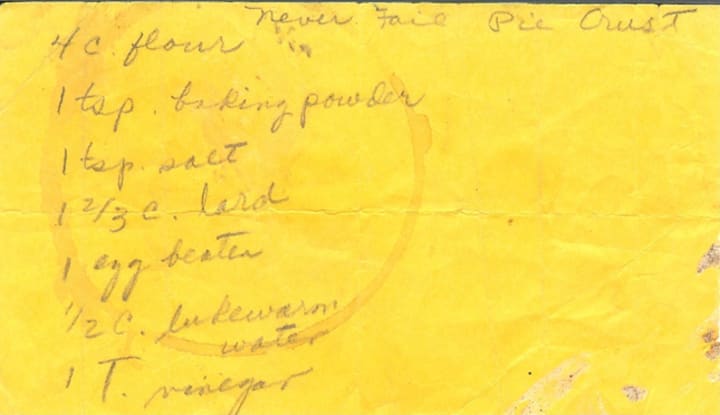 Never Fail Pie Crust
4 c. flour
1 tsp. baking powder
1 tsp. salt
1 2/3 c. lard
1 egg beaten
1/2 c. lukewarm
water
1 T. vinegar